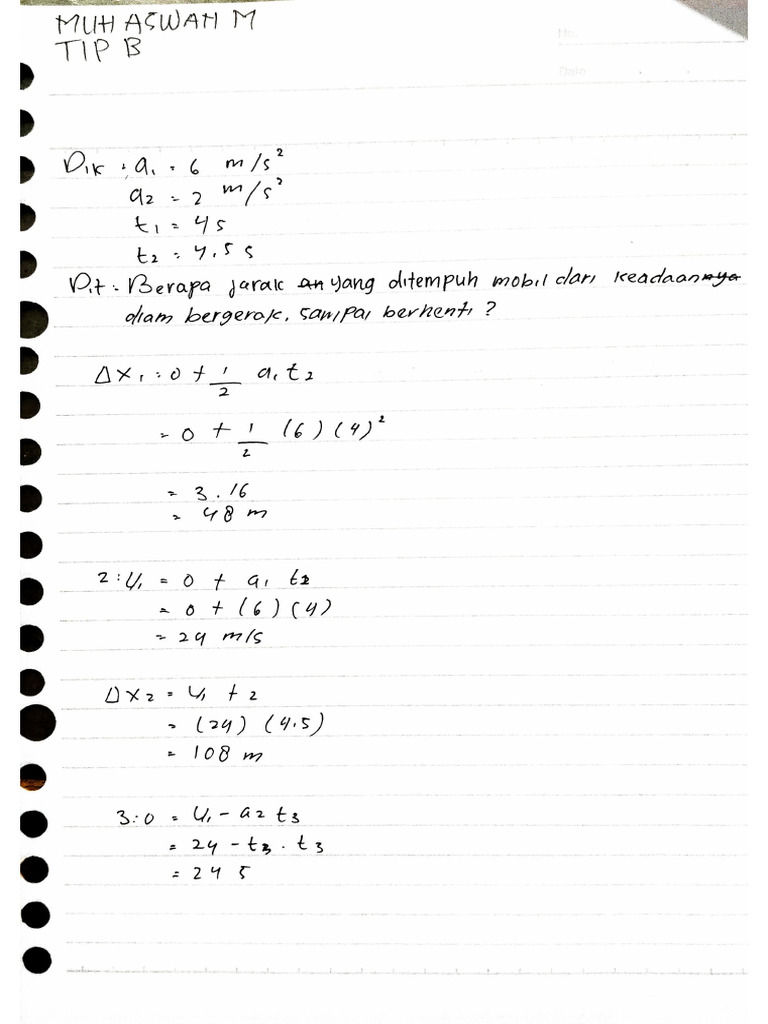 No.
Date
MUH ASWAH M
TIP B
Dik : a₁ = 6 m/s²
a₂ = 2 m/s²
t₁ = 4s
t₂ = 4,5 s
Dit : Berapa jarak yang ditempuh mobil dari keadaan
diam bergerak, sampai berhenti ?
Δx₁ = 0 + 1/2 a₁ t₂
= 0 + 1/2 (6) (4)²
= 3 . 16
= 48 m
2 : V₁ = 0 + a₁ t₂
= 0 + (6) (4)
= 24 m/s
Δx₂ = V₁ t₂
= (24) (4.5)
= 108 m
3 : 0 = V₁ - a₂ t₃
= 24 - t₃ . t₃
= 24 s